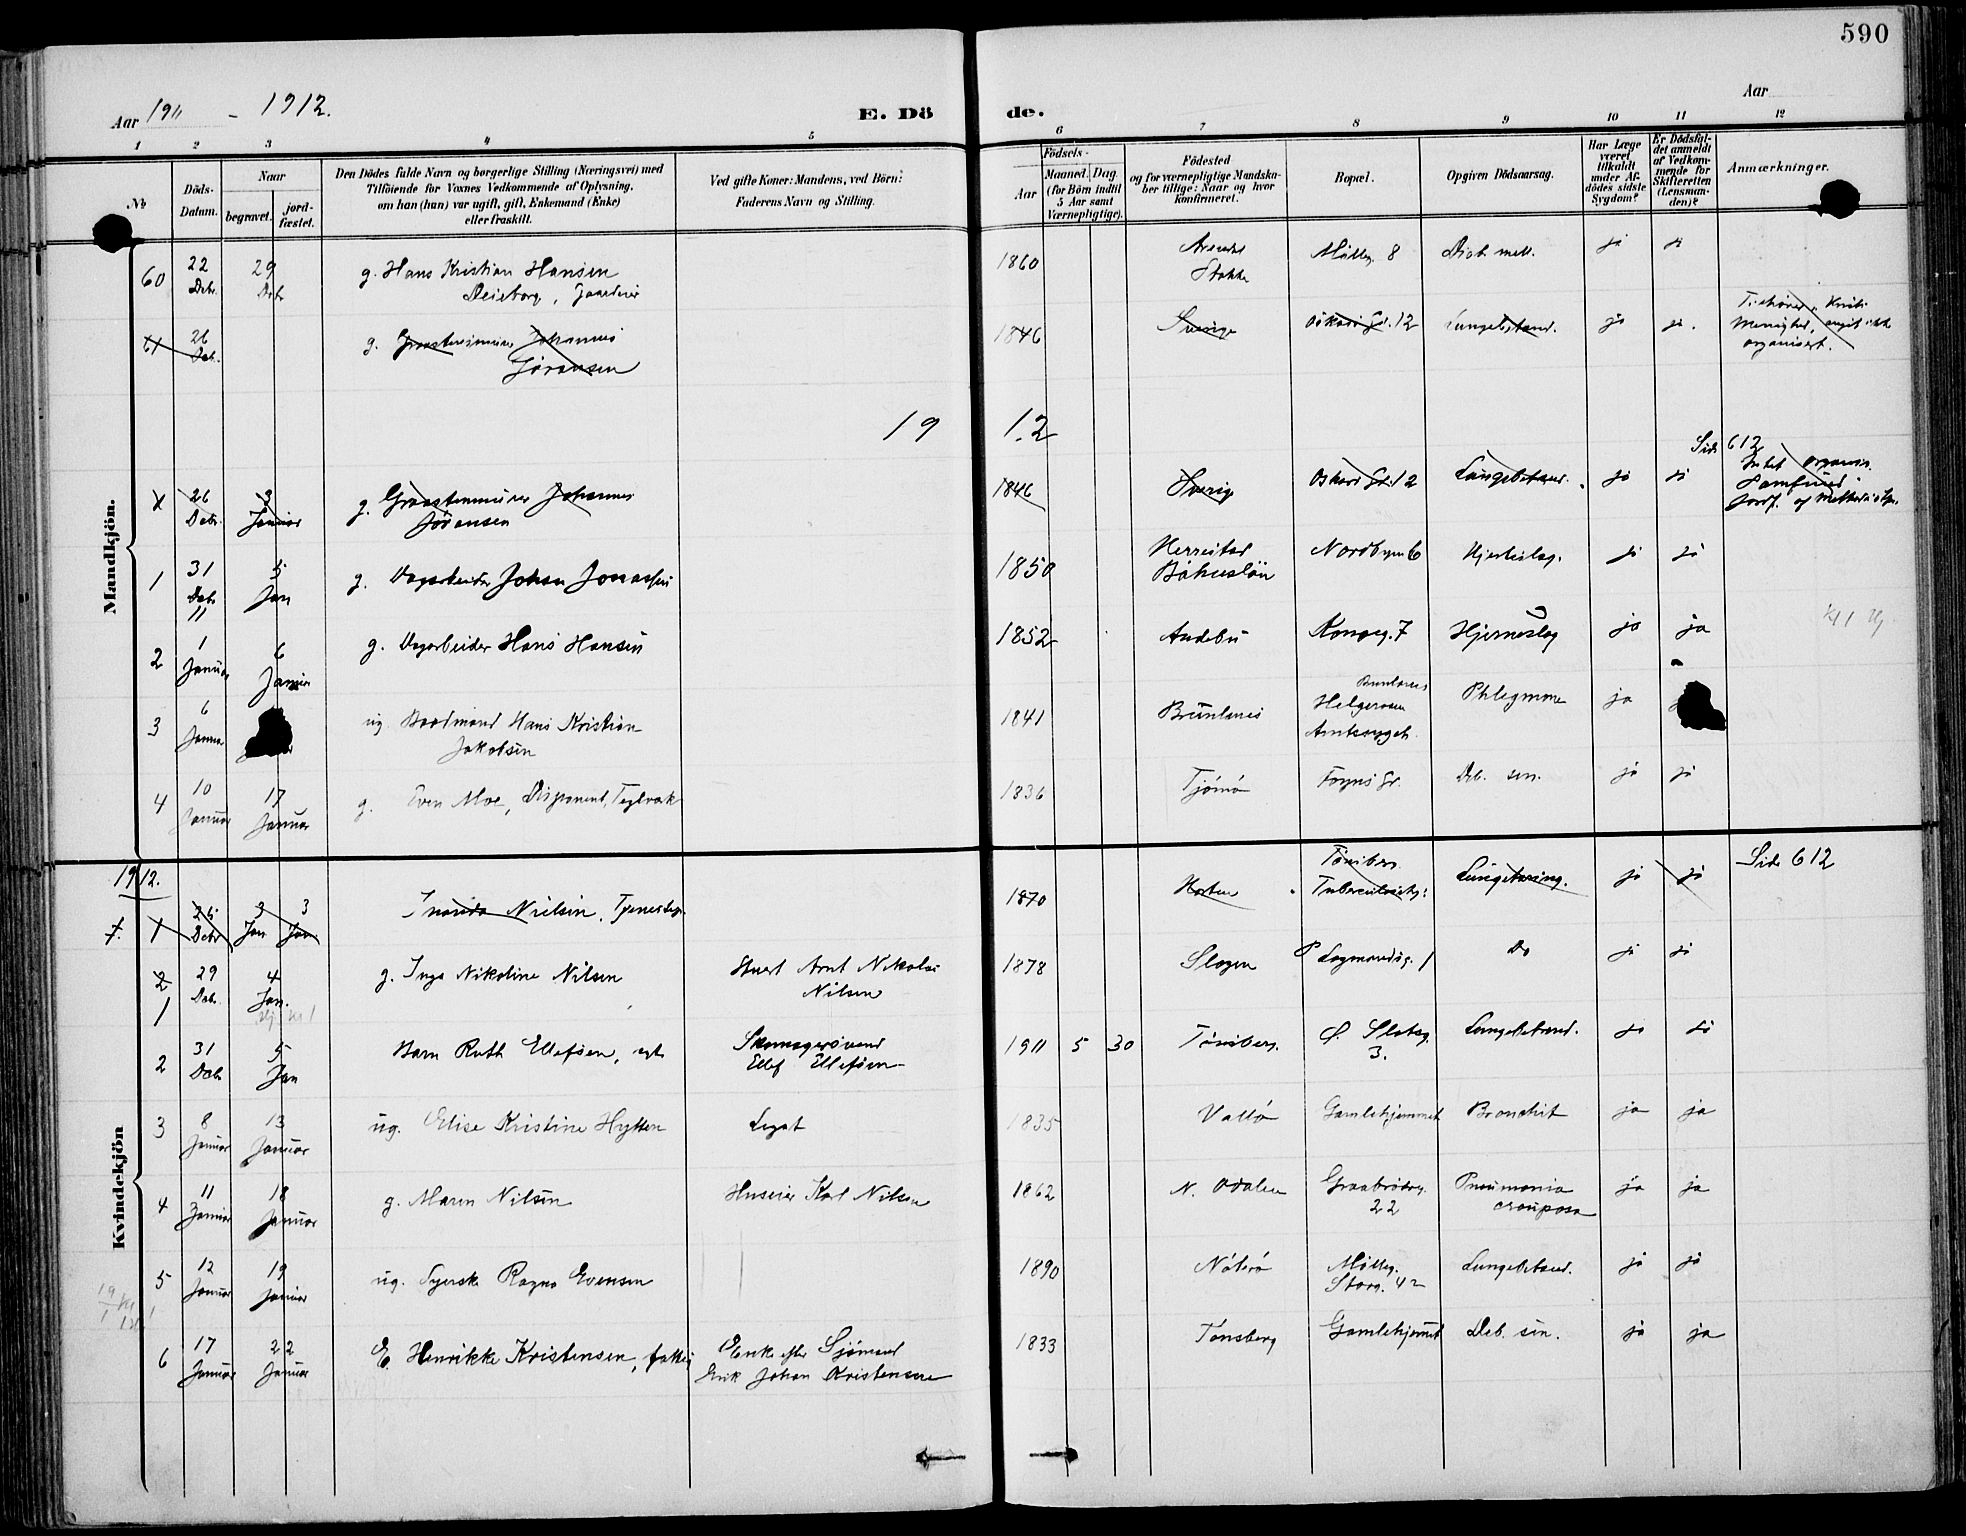 590
Aar 1911 - 1912.
E. Dö
de.
Aar
1 2 3 4 5 6 7 8 9 10 11 12
№
Döds-Datum.
Naar
begravet.
jord-fæstet.
Den Dödes fulde Navn og borgerlige Stilling (Næringsvei) med
Tilföiende for Voxnes Vedkommende af Oplysning,
om han (hun) var ugift, gift, Enkemand (Enke)
eller fraskilt.
Ved gifte Koner: Mandens, ved Börn:
Faderens Navn og Stilling.
Födsels-
Aar
Maaned. Dag.
(for Börn indtil
5 Aar samt
Værnepligtige).
Födested
og for værnepligtige Mandska-
ber tillige: Naar og hvor
konfirmeret.
Bopæl.
Opgiven Dödsaarsag.
Har Læge
været
tilkaldt
under Af-
dödes sidste
Sygdom?
Er Dödsfal-
det anmeldt
af Vedkom-
mende for
Skifteretten
(Lensman-
den)?
Anmærkninger.
Mandkjön.
60 22 Debr. 29 Debr g. Hans Kristian Hansen 1860 Stokke Mølleg. 8 Diab. mell. ja ja
61 26 Deb. g. Graastensminer Johannes Jøransen 1846 Sverige Oskars Gd. 12 Lungebetænd. ja ja.
Menighed,
organisert.
19 12
Side 612
1 26 Debr. 3 Januar g. Graastensminer Johannes Jøransen 1846 Sverige Oskars Gd. 12 Lungebetænd. ja ja
Intet organis.
Samfund
1 31 Debr 11 5 Jan g. Dagarbeider Johan Jonassen 1850 Herrestad Båhuslän Nordbyen 6 Hjerteslag. ja ja
2 1 Januar 6 Januar g. Dagarbeider Hans Hansen 1852 Andebu Kongeg. 7 Hjerneslag ja ja
3 6 Januar ug. Baadmand Hans Kristian Jakobsen 1841 Brunlanes Brunlanes Helgeroen Amtssygeh. Phlegmone ja
4 10 Januar 17 Januar g. Even Moe, Disponent, Teglverk 1836 Tjømø Foyns Gt. Deb. sen. ja ja
Kvindekjön
1912.
1 26 Debr 3 Jan 3 Jan Nielsen, Tjenestep. 1870 Horten Tønsberg Tuberculosehj. Lungetæring. ja ja Side 612
2 1 29 Debr. 4 Jan. g. Inga Nikoline Nilsen Arnt Nikolai Nilsen 1878 Slagen Lagmandsg. 1 Do ja ja
2 31 Debr 5 Jan Barn Ruth Ellefsen, egte Skomagersvend Ellef Ellefsen 1911 5 30 Tønsberg. Ø. Slotsg. 3. Lungebetænd. ja ja
3 8 Januar 13 Januar ug. Elise Kristine Hytten Legat 1835 Vallø Gamlehjemmet Bronchit ja ja
4 11 Januar 18 Januar g. Maren Nilsen Huseier Karl Nilsen 1862 N. Odalen Graabrødreg. 22 Pneumonia crouposa ja ja
5 12 Januar 19 Januar ug. Syerske Ragna Evensen 1890 Nøterø Mølleg. Storg. 42 Lungebetænd. ja ja
6 17 Januar 22 Januar E. Henrikke Kristensen, fattig Enke efter Sjømand Erik Johan Kristensen 1833 Tønsberg Gamlehjemmet Deb. sen. ja ja